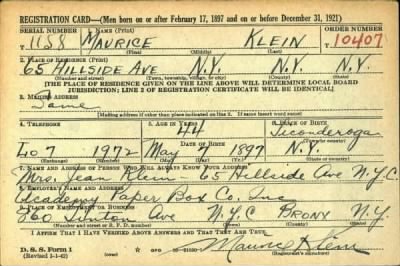 REGISTRATION CARD—(Men born on or after February 17, 1897 and on or before December 31, 1921)
SERIAL NUMBER 1. NAME (Print) ORDER NUMBER
1158 MAURICE KLEIN 10407
(First) (Middle) (Last)
2. PLACE OF RESIDENCE (Print)
65 HILLSIDE AVE N.Y. N.Y. N.Y.
(Number and street) (Town, township, village, or city) (County) (State)
[THE PLACE OF RESIDENCE GIVEN ON THE LINE ABOVE WILL DETERMINE LOCAL BOARD
JURISDICTION; LINE 2 OF REGISTRATION CERTIFICATE WILL BE IDENTICAL]
3. MAILING ADDRESS
Same
[Mailing address if other than place indicated on line 2. If same insert word same]
4. TELEPHONE 5. AGE IN YEARS 6. PLACE OF BIRTH
44 Ticonderoga
DATE OF BIRTH (Town or county)
Lo 7 1972 May 7 1897 N.Y.
(Exchange) (Number) (Mo.) (Day) (Yr.) (State or country)
7. NAME AND ADDRESS OF PERSON WHO WILL ALWAYS KNOW YOUR ADDRESS
Mrs. Jean Klein 65 Hillside Ave N.Y.C.
8. EMPLOYER'S NAME AND ADDRESS
Academy Paper Box Co. Inc
9. PLACE OF EMPLOYMENT OR BUSINESS
260 Ave N.Y.C BRONX N.Y.
(Number and street or R. F. D. number) (Town) (County) (State)
I AFFIRM THAT I HAVE VERIFIED ABOVE ANSWERS AND THAT THEY ARE TRUE.
D. S. S. Form 1 Maurice Klein
(Revised 1-1-42) (Registrant's signature)